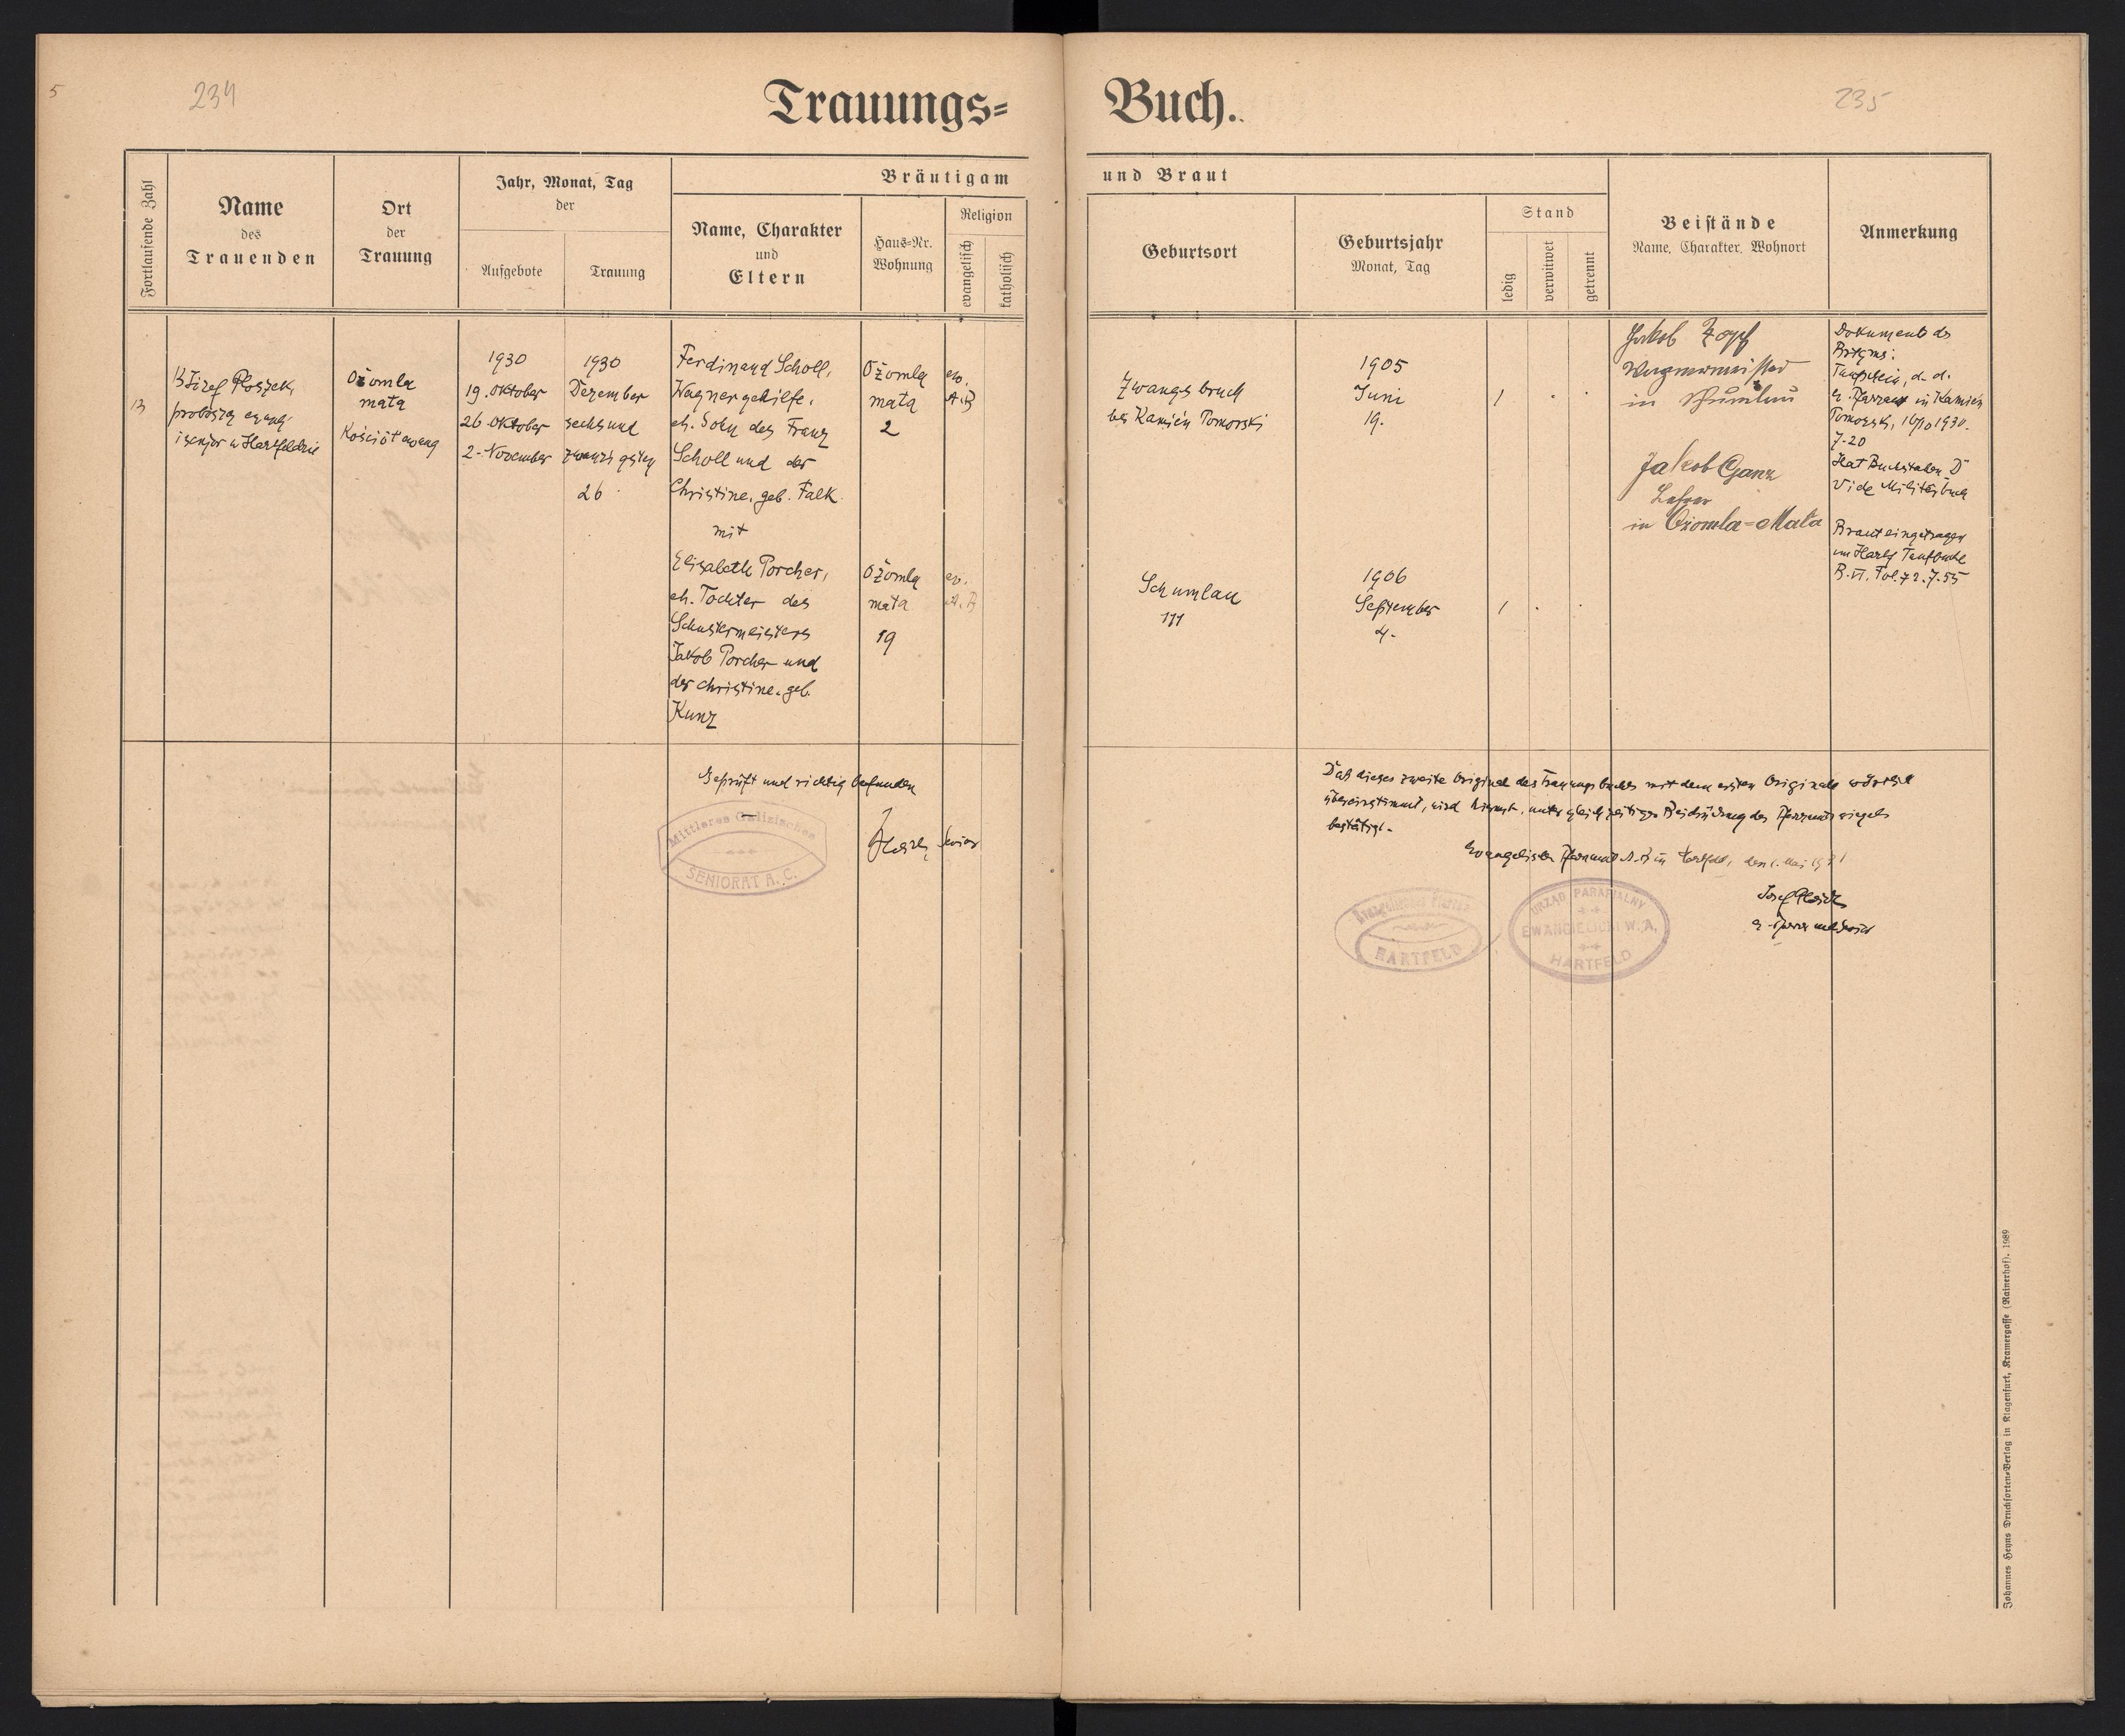 5
234
235
Trauungs=
Buch.
Fortlaufende Zahl
Name
des
Trauenden
Ort
der
Trauung
Jahr, Monat, Tag
der
Aufgebote
Trauung
Bräutigam
Name, Charakter
und
Eltern
Haus=Nr.
Wohnung
Religion
evangelisch
katholisch
und Braut
Geburtsort
Geburtsjahr
Monat, Tag
Stand
ledig
verwitwet
getrennt
Beistände
Name, Charakter, Wohnort
Anmerkung
13
proboszcz ewang.
i senjor w Hartfeldzie
Ożomla
mała
Kościół ewang
1930
19. Oktober
26. Oktober
2. November
1930
Dezember
sechsund
zwanzigsten
26
Ferdinand Scholl,
Wagnergehilfe,
eh. Sohn des Franz
Scholl und der
Christine, geb. Falk
mit
Elisabeth Porcher,
eh. Tochter des
Schustermeisters
Jakob Porcher und
der Christine, geb.
Kunz
Ożomla
mała
2
Ożomla
mała
19
ev.
A.B
ev.
A.B
Zwangsbruch
bei Kamień Pomorski
Schumlau
111
1905
Juni
19.
1906
September
4.
1
1
Jakob Zopf
Wagnermeister
in Schumlau
Jakob Ganz
Lehrer
in Ożomla=Mała
Dokumente des
Taufschein, d. d.
in Kamień
Pomorski, 1930.
7.20
Hat Buchstaben D
vide Militärbuch
Braut eingetragen
im Hartf Taufbuche
B. VI. Fol. 72. 7. 55
Geprüft und richtig befunden
Senior
Mittleres Galizisches
SENIORAT A. C.
Daß dieses zweite Original des Trauungsbuches mit dem ersten Originale wörtlich
übereinstimmt, wird hiermit, unter gleichzeitiger Beidrückung des Pfarramtssiegels
bestätigt.
Evangelisches Pfarramt A. B in Hartfeld, den 1. Mai
Evangelisches Pfarramt
HARTFELD
URZĄD PARAFIALNY
EWANGIELICKI W. A.
HARTFELD
Johannes Heyns Drucksorten=Verlag in Klagenfurt, Kramergasse (Rainerhof). 1989